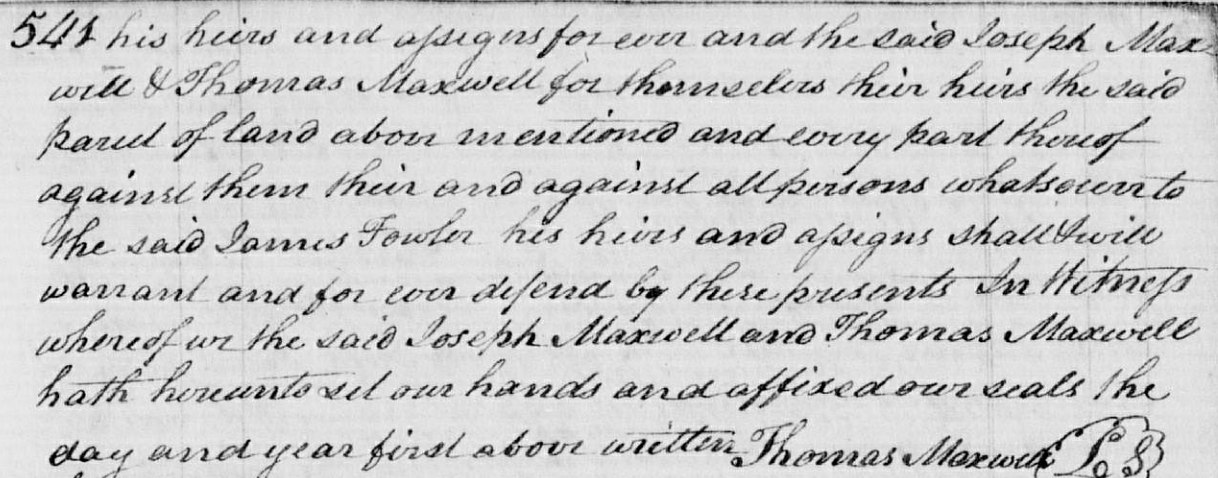 541 his heirs and assigns for ever and the said Joseph Max-
will & Thomas Maxwell for themselves their heirs the said
parcel of land above mentioned and every part thereof
against them their and against all persons whatsoever to
the said James Fowler his heirs and assigns shall & will
warrant and for ever defend by these presents In Witness
whereof we the said Joseph Maxwell and Thomas Maxwell
hath hereunto set our hands and affixed our seals the
day and year first above written Thomas Maxwell (L. S)